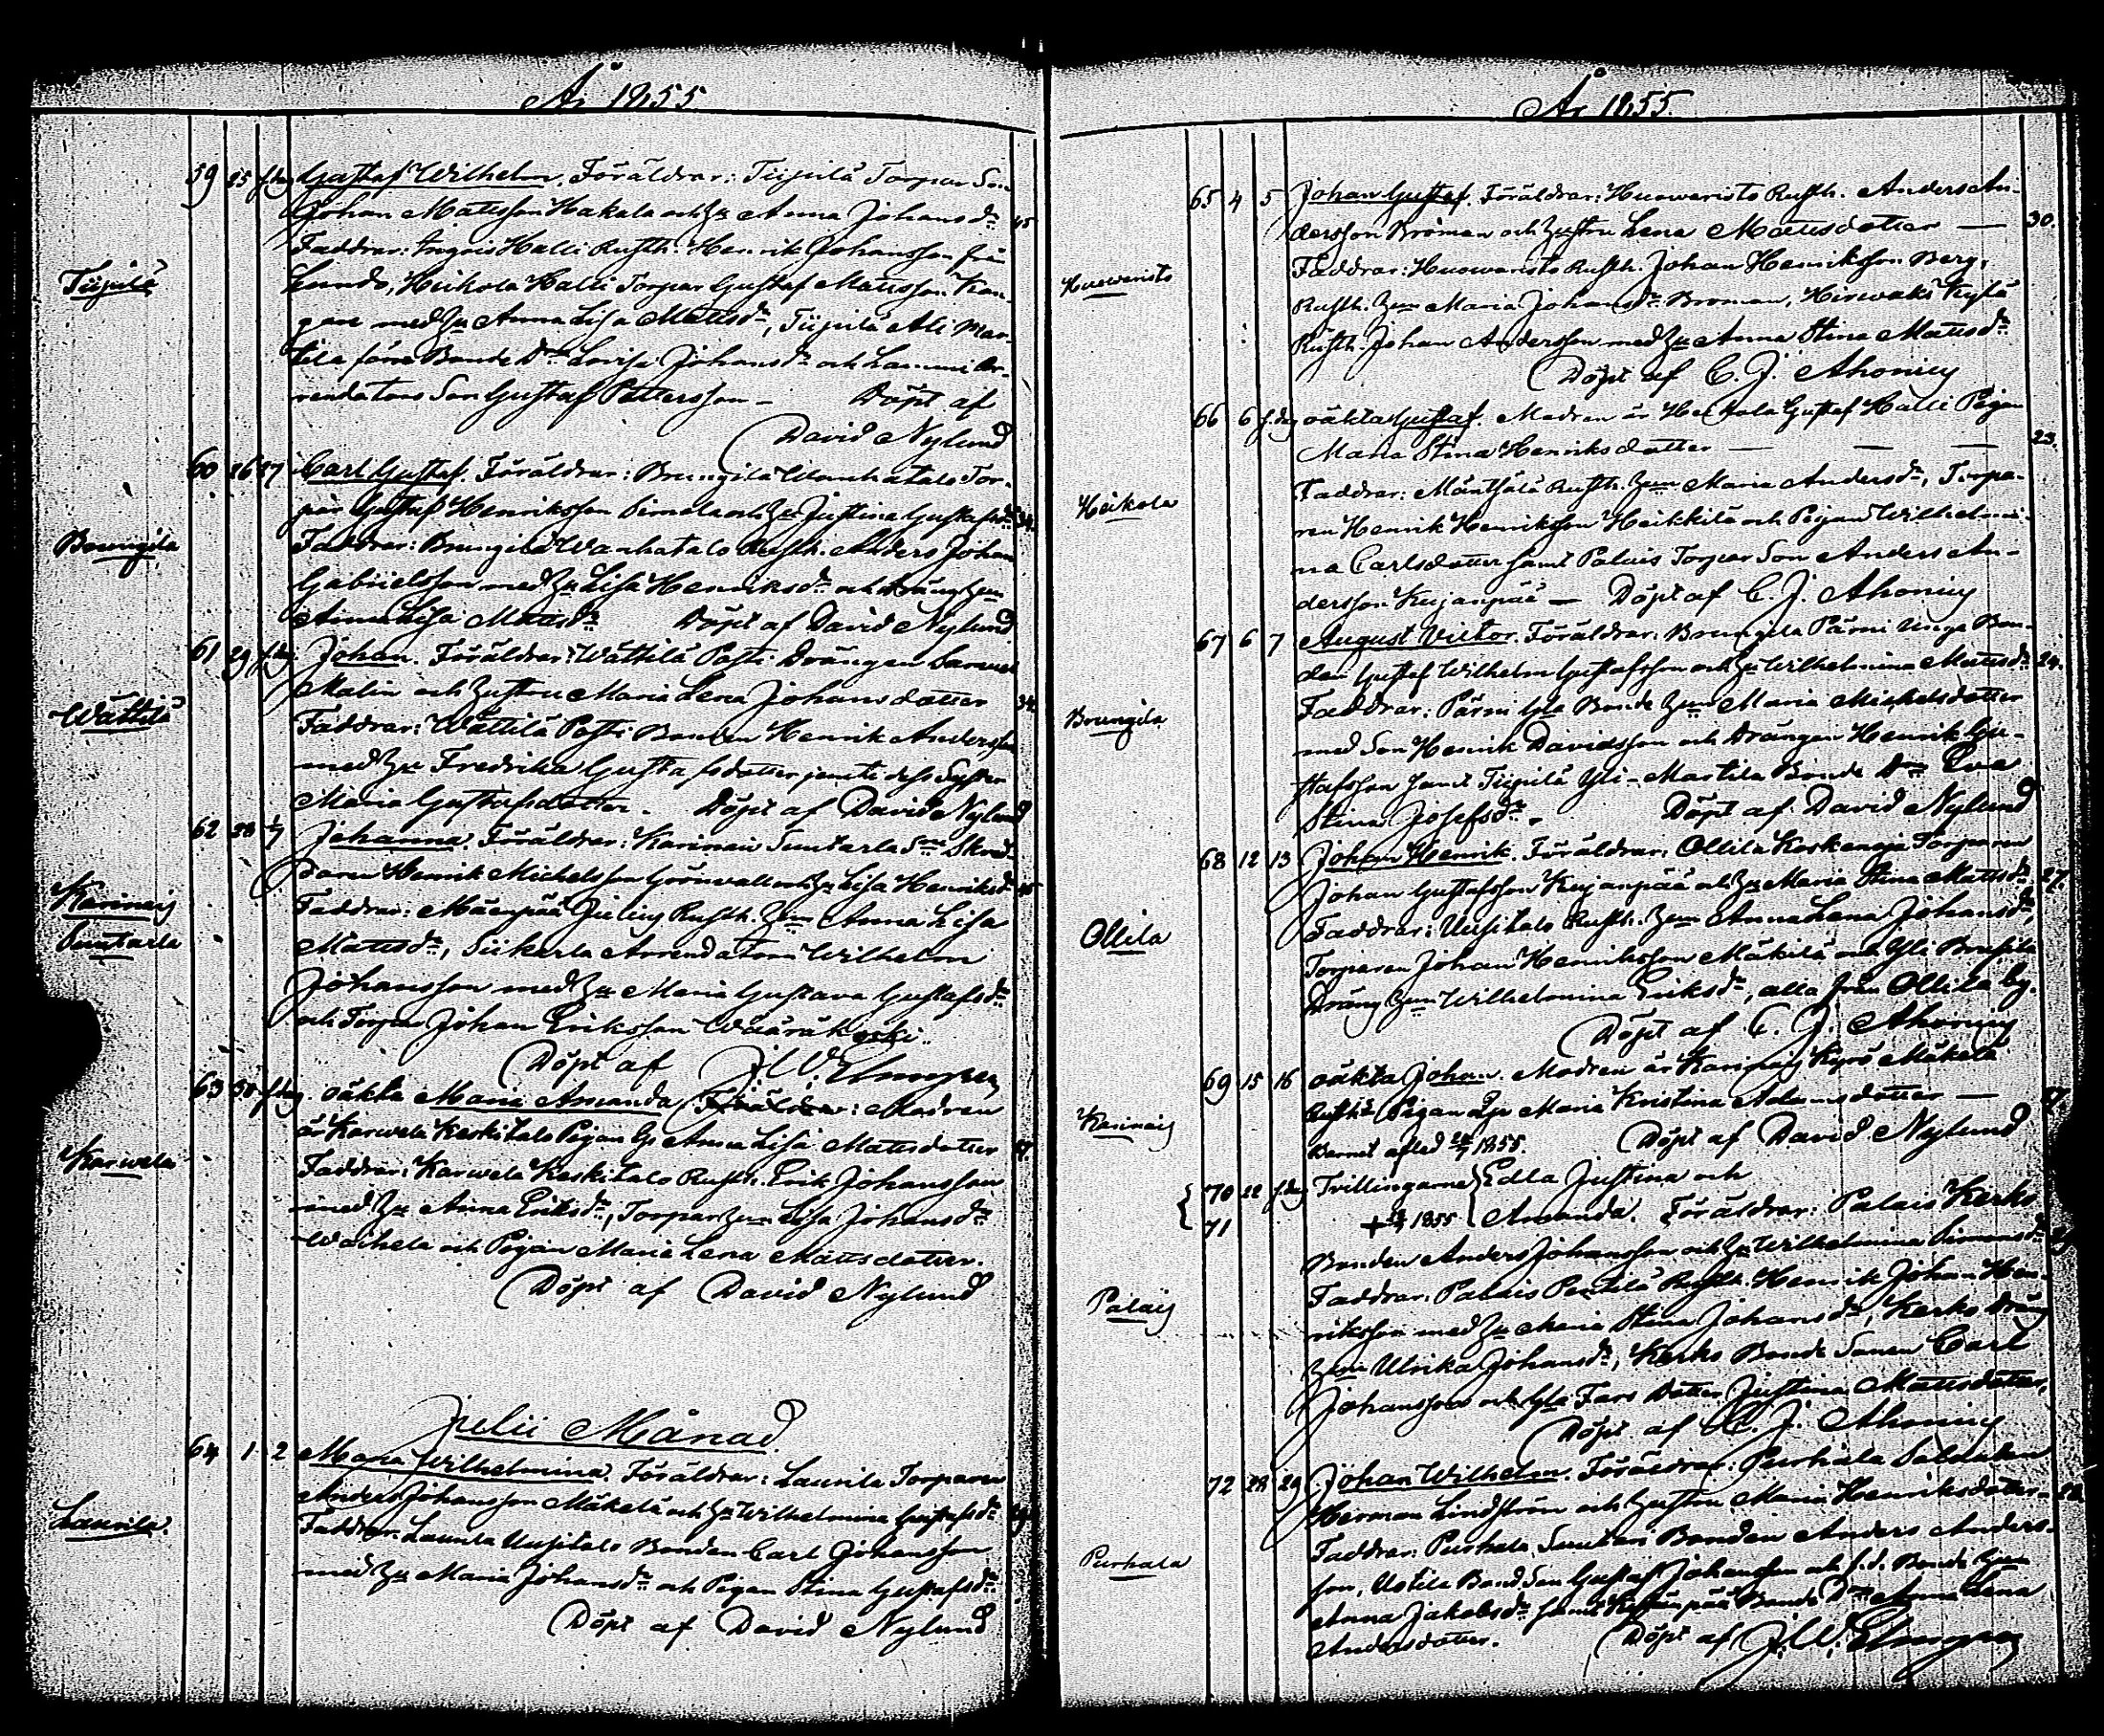 År 1855
59 25 f. dag Gustaf Wilhelm. Föräldrar: Tiipilä Torpar Son
Johan Matsson Hakala och Hu Anna Johansdr 45
Faddrar: Halli Rusth. Henrik Johansson från
Tiipilä
Lundo, Heikola Halli Torpar Gustaf Matsson Kan-
gare med Hu Anna Lisa Mattsdr, Tiipilä Ali Mar-
tila förre Bonde Dr Lovisa Johansdr och Lammi Ar-
rendators Son Gustaf Pettersson – Döpt af
David Nylund
60 26 27 Carl Gustaf. Föräldrar: Brungila Wanhatalo Tor-
par Gustaf Henriksson Pirnela och Hu Justina Gustafsdr 34
Brungila
Faddrar: Brungila Wanhatalo Rusth. Anders Johan
Gabrielsson med Hu Lisa Henriksdr och Dräng Hun
Anna Lisa Mattsdr Döpt af David Nylund
61 29 f. dag Johan. Föräldrar: Wättilä Posti Drängen Samuel
Malin och Hustru Maria Lena Johansdotter 34
Wättilä
Faddrar: Wättilä Posti Bonden Henrik Andersson
med Hu Fredrika Gustafsdotter jemte dess Syster
Maria Gustafsdotter. Döpt af David Nylund
62 28 1/7 Johanna. Föräldrar: Karinais Suntarla Sn Skräd-
daren Henrik Michelsson Grönvall och Hu Lisa Henriksdr
Karinais
Suntarla
Faddrar: Mäenpää Rusth. Hun Anna Lisa
Mattsdr, Siikarla Arrendatorn Wilhelm
Johansson med Hu Maria Gustava Gustafsdr
och Torpar Johan Eriksson Wääräkoski.
Döpt af J. W. Elmgren
63 30 f. dag. oäkta Maria Amanda Föräldrar: Modren
är Karwela Keskitalo Pigan Anna Lisa Mattsdotter
Karwela
Faddrar: Karwela Keskitalo Rusth. Erik Johansson
med Hu Anna Eriksdr, Torpar Hun Lisa Johansdr
Waihela och Pigan Maria Lena Mattsdotter.
Döpt af David Nylund
Julii Månad.
64 1 2 Maria Wilhelmina. Föräldrar: Laurila Torparen
Anders Johansson Mäkelä och Hu Wilhelmina Gustafsdr
Laurila.
Faddrar: Laurila Uusitalo Bonden Carl Johansson
med Hu Maria Johansdr och Pigan Stina Gustafsdr
Döpt af David Nylund
År 1855.
65 4 5 Johan Gustaf. Föräldrar: Huoweristo Rusth. Anders An-
dersson Broman och Hustru Lena Mattsdotter — 30.
Huoweristo
Faddrar: Huoweristo Rusth. Johan Henriksson Berg,
Rusth. Hun Maria Johansdr Broman, Hirwaks Kylä
Rusth. Johan Andersson med Hu Anna Stina Mattsdr
Döpt af C. J. Ahonius
66 6 f. dag oäkta Gustaf. Modren är Heikola Gustaf Halli Pigan
Maria Stina Henriksdotter — — — 23.
Heikola
Faddrar: Mäntsälä Rusth. Hun Maria Andersdr, Torpa-
ren Henrik Henriksson Heikkilä och Pigan Wilhelmi-
na Carlsdotter samt Palais Torpar Son Anders An-
dersson Kujanpää — Döpt af C. J. Ahonius
67 6 7 August Victor. Föräldrar: Brungila Pärni unga Bon-
den Gustaf Wilhelm Gustafsson och Hu Wilhelmina Mattsdr 24.
Brungila
Faddrar: Pärni Gla Bonde Hun Maria Michelsdotter
med Son Henrik Davidsson och Drängen Henrik Gu-
stafsson samt Tiipilä Yli-Martila Bonde Dr Eva
Stina Josefsdr. Döpt af David Nylund
68 12 13 Johan Henrik. Föräldrar: Ollila Koskenoja Torparen
Johan Gustafsson Kujanpää och Hu Maria Stina Mattsdr 27.
Ollila
Faddrar: Uusitalo Rusth. Hun Anna Lena Johansdr,
Torparen Johan Henriksson Mäkilä och Yli Brusila
Dräng Hun Wilhelmina Eriksdr, alla från Ollila by.
Döpt af C. J. Ahonius
69 15 16 oäkta Johan. Modren är Karinais Kyrö Mäkelä
Karinais
Rusth. Pigan Maria Kristina Adamsdotter —
Barnet afled 1855. Döpt af David Nylund
70 22 f. dag Trillingarna Edla Justina och
71 + 1855 Amanda. Föräldrar: Palais Kerko
Bonden Anders Johansson och Hu Wilhelmina Simonsdr
Palais
Faddrar: Palais Pentilä Rusth. Henrik Johan Hen-
riksson med Hu Maria Stina Johansdr, Kerko Dräng
Hun Ulrika Johansdr, Kerko Bonde Sonen Carl
Johansson och Gla Fars Dotter Justina Mattsdotter,
Döpt af C. J. Ahonius
72 28 29 Johan Wilhelm. Föräldrar: Purhala Soldaten
Herman Lindström och Hustru Maria Henriksdotter
Purhala
Faddrar: Purhala Suutari Bonden Anders Anders-
son, Uotila Bond Son Gustaf Johansson och f. d. Bonde Hun
Anna Jakobsdr samt Bonde Dr Anna Lena
Andersdotter. Döpt af J. W. Elmgren